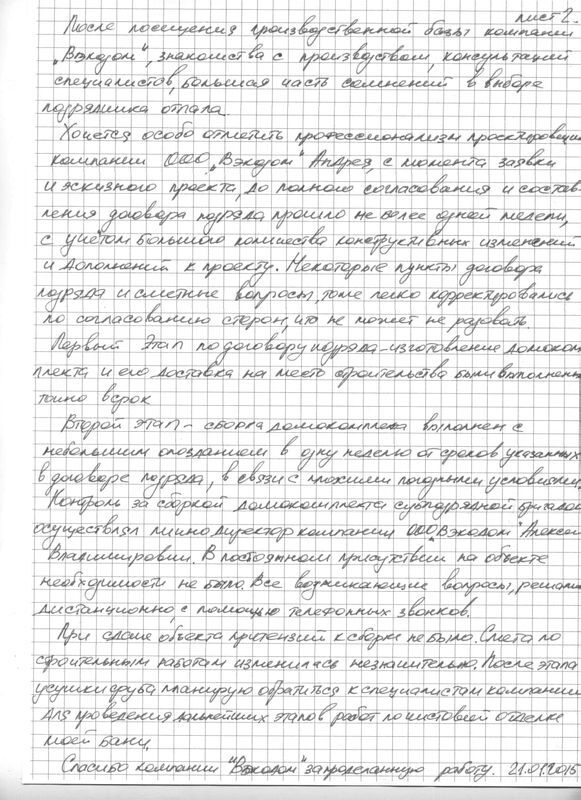 лист 2.
После посещения производственной базы компании
„Вэкодом", знакомства с производством, консультаций
специалистов, большая часть сомнений в выборе
подрядчика отпала.
Хочется особо отметить профессионализм проектировщика
компании ООО „Вэкодом" Андрея, с момента заявки
и эскизного проекта, до полного согласования и состав-
ления договора подряда прошло не более одной недели,
с учётом большого количества конструктивных изменений
и дополнений к проекту. Некоторые пункты договора
подряда и сметные вопросы, тоже легко корректировались
по согласованию сторон, что не может не радовать.
Первый этап по договору подряда - изготовление домоком
плекта и его доставка на место строительства были выполнены
точно в срок
Второй этап - сборка домокомплекта выполнен с
небольшим опозданием в одну неделю от сроков указанных
в договоре подряда, в связи с плохими погодными условиями.
Контроль за сборкой домокомплекта субподрядной бригадой
осуществлял лично директор компании ООО „Вэкодом" Алексей
Владимирович. В постоянном присутствии на объекте
необходимости не было. Все возникающие вопросы, решали
дистанционно, с помощью телефонных звонков.
При сдаче объекта притензий к сборке не было. Смета по
строительным работам изменилась незначительно. После этапа
усушки сруба планирую обратиться к специалистам компании
для проведения дальнейших этапов работ по чистовой отделке
моей бани.
Спасибо компании "Вэкодом" за проделанную работу. 21.01.2015